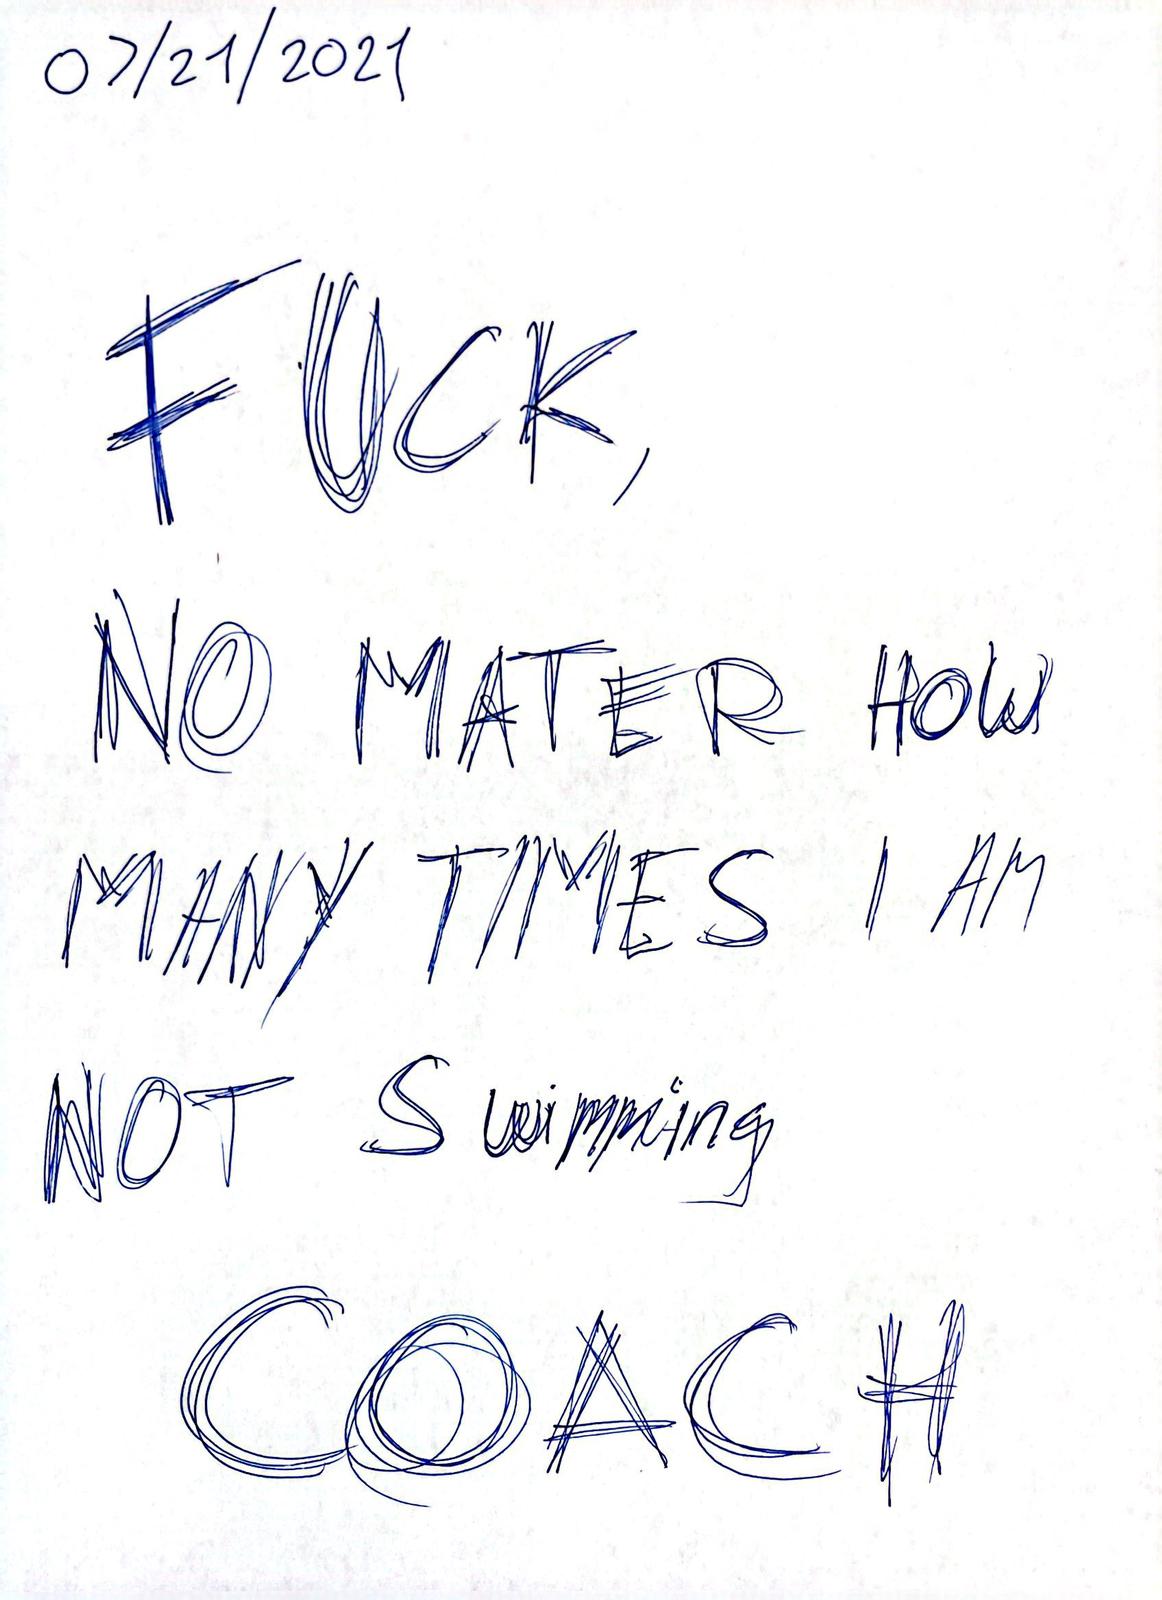 07/21/2021
FUCK,
NO MATER HOW
MANY TIMES I AM
NOT Swimming
COACH